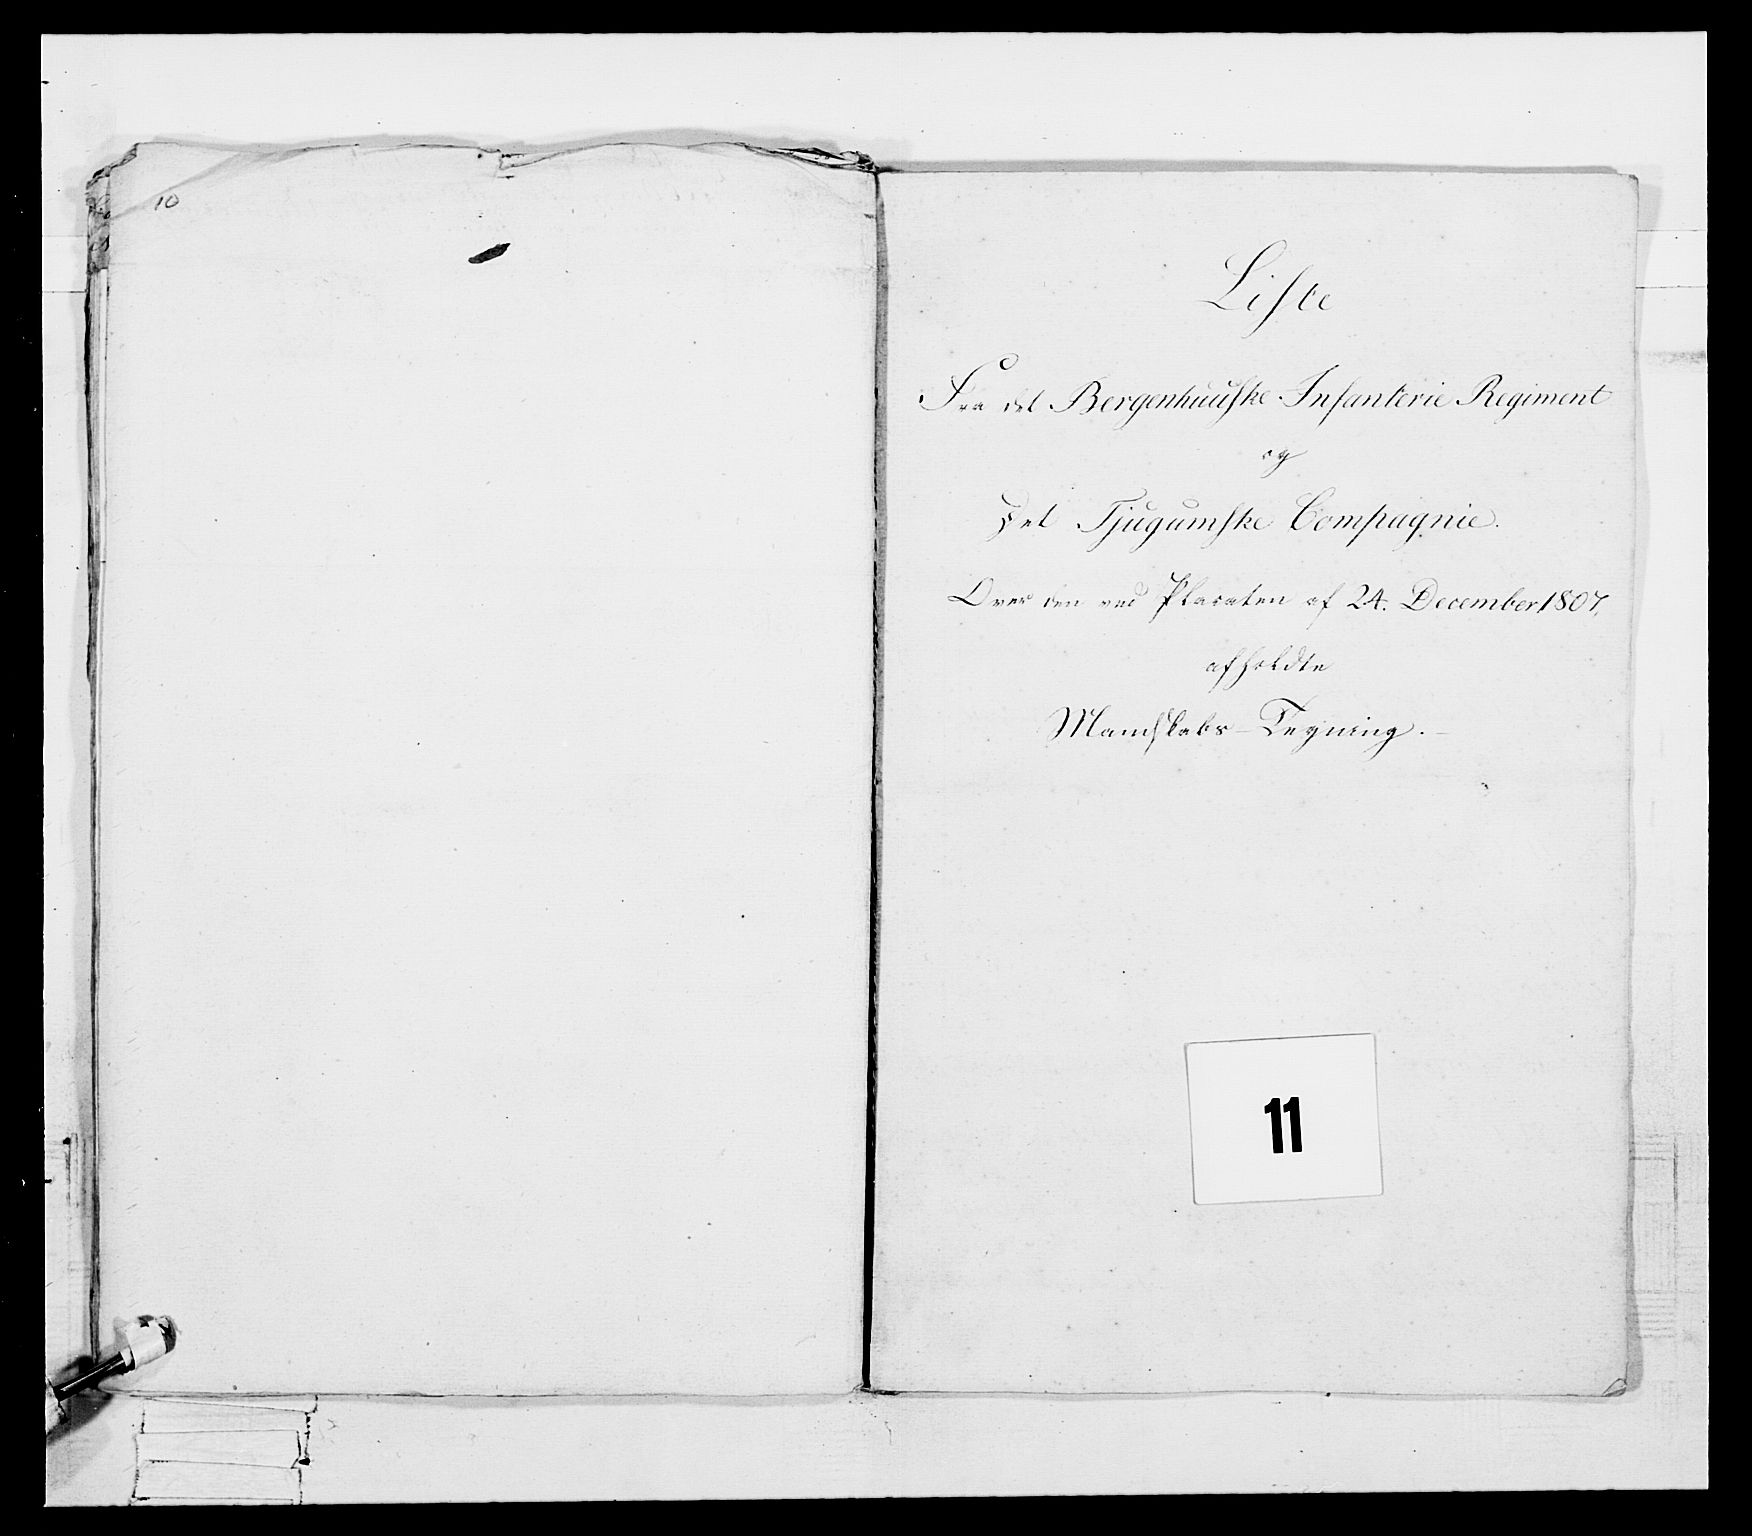 10
Liste
Fra det Bergenhuuske Infanterie Regiment
og
Det Tjugumske Compagnie.
Over den ved Placaten af 24. December 1807,
afholdte
Mandskabs-Tegning.
11